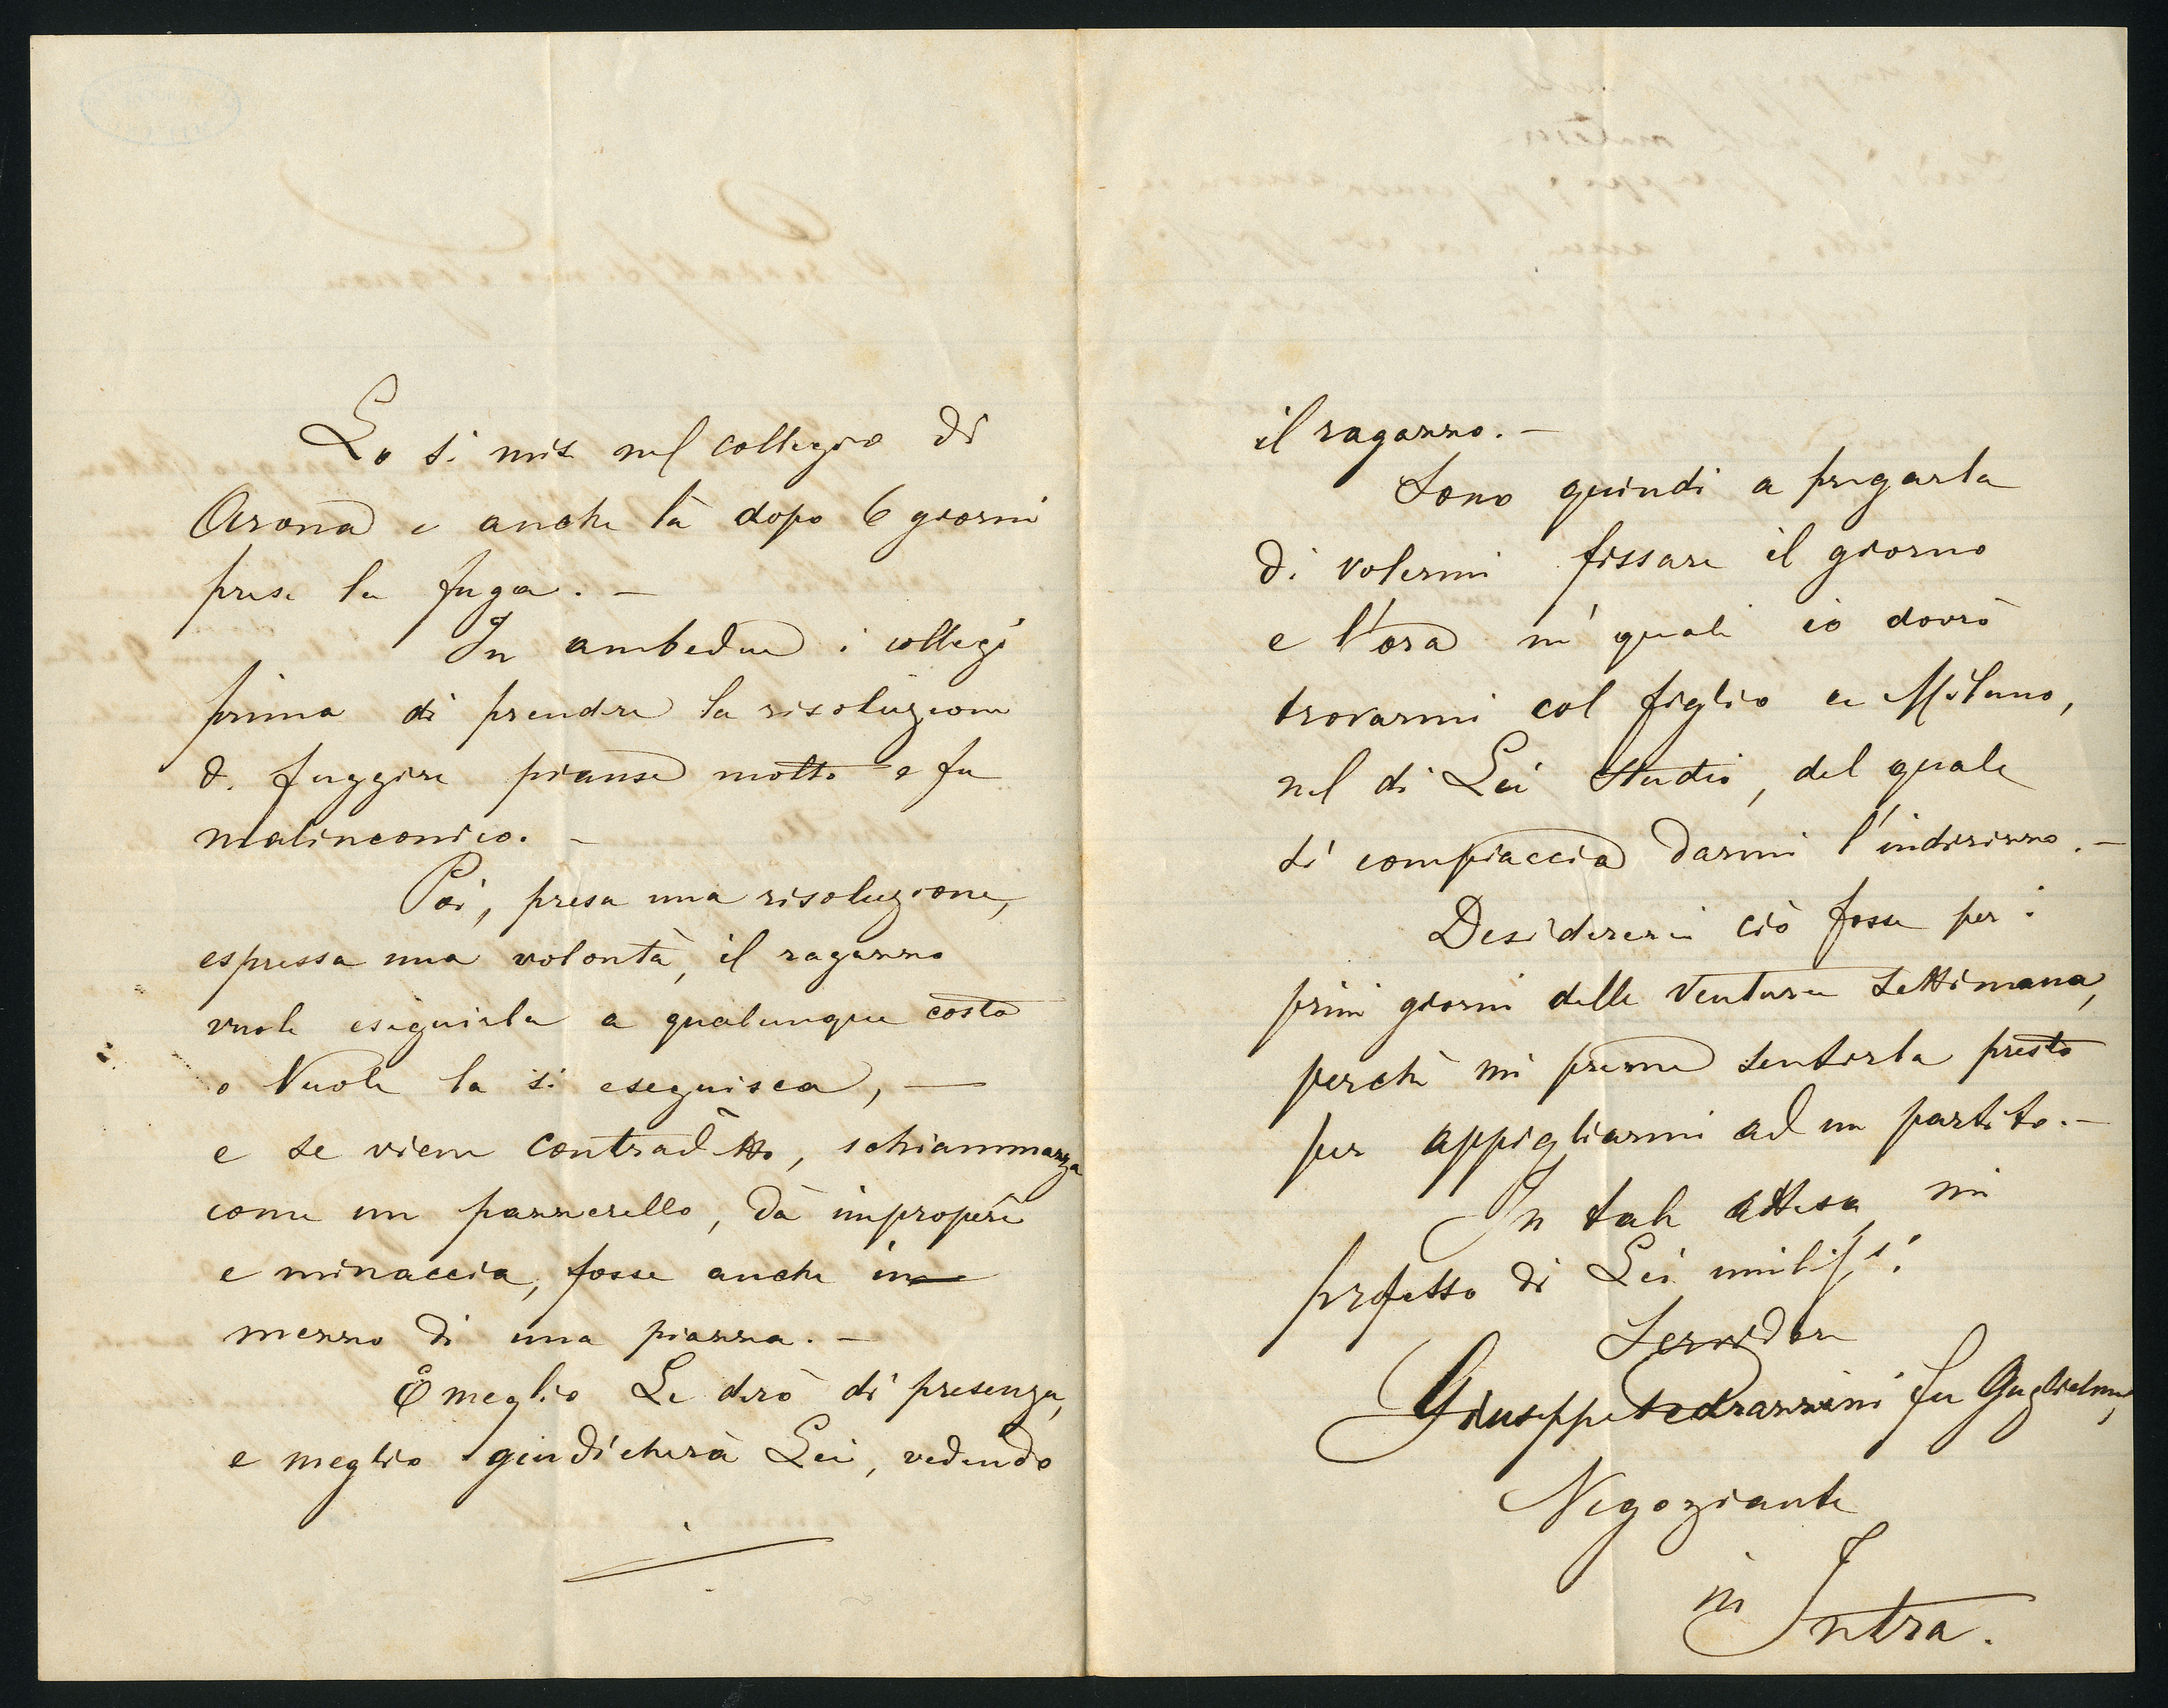 Lo si mise nel collegio di
Arona e anche là dopo 6 giorni
prese la fuga. —
In ambedue i collegi
prima di prendere la risoluzione
di fuggire pianse molto e fu
malinconico. —
Poi, presa una risoluzione,
espressa una volontà, il ragazzo
vuole eseguirla a qualunque costo
o vuole la si eseguisca, —
e se viene contradetto, schiammazza
come un pazzerello, dà improperi
e minaccia, fosse anche in
mezzo di una piazza. —
E meglio Le dirò di presenza,
e meglio giudicherà Lei, vedendo
il ragazzo. —
Sono quindi a pregarla
di volermi fissare il giorno
e l'ora ne' quali io dovrò
trovarmi col figlio a Milano,
nel di Lei studio, del quale
si compiaccia darmi l'indirizzo. —
Desidererei ciò fosse per i
primi giorni della ventura settimana,
perchè mi preme sentirla presto
per appigliarmi ad un partito. —
In tale attesa, mi
professo di Lei
Servidore
Giuseppe Pedrazzini fu Guglielmo,
Negoziante
in Intra.